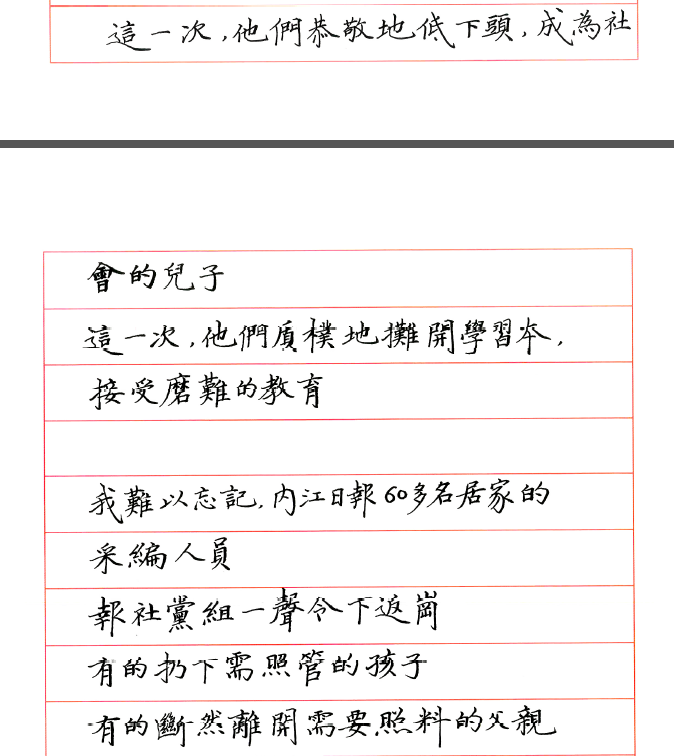 這一次，他們恭敬地低下頭，成為社
會的兒子
這一次，他們質樸地攤開學習本，
接受磨難的教育
我難以忘記，内江日報60多名居家的
采編人員
報社黨組一聲令下返崗
有的扔下需照管的孩子
有的斷然離開需要照料的父親